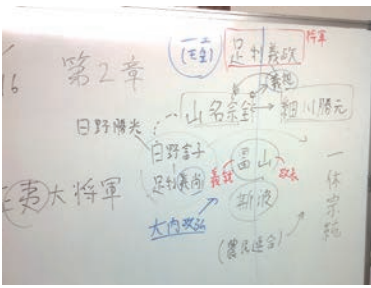 16
第2章
足利義政
将軍
義視
山名宗全
細川勝元
日野勝光
日野富子
足利義尚
畠山
義就
政長
斯波
夷大将軍
大内政弘
(農民連合)
一休宗純